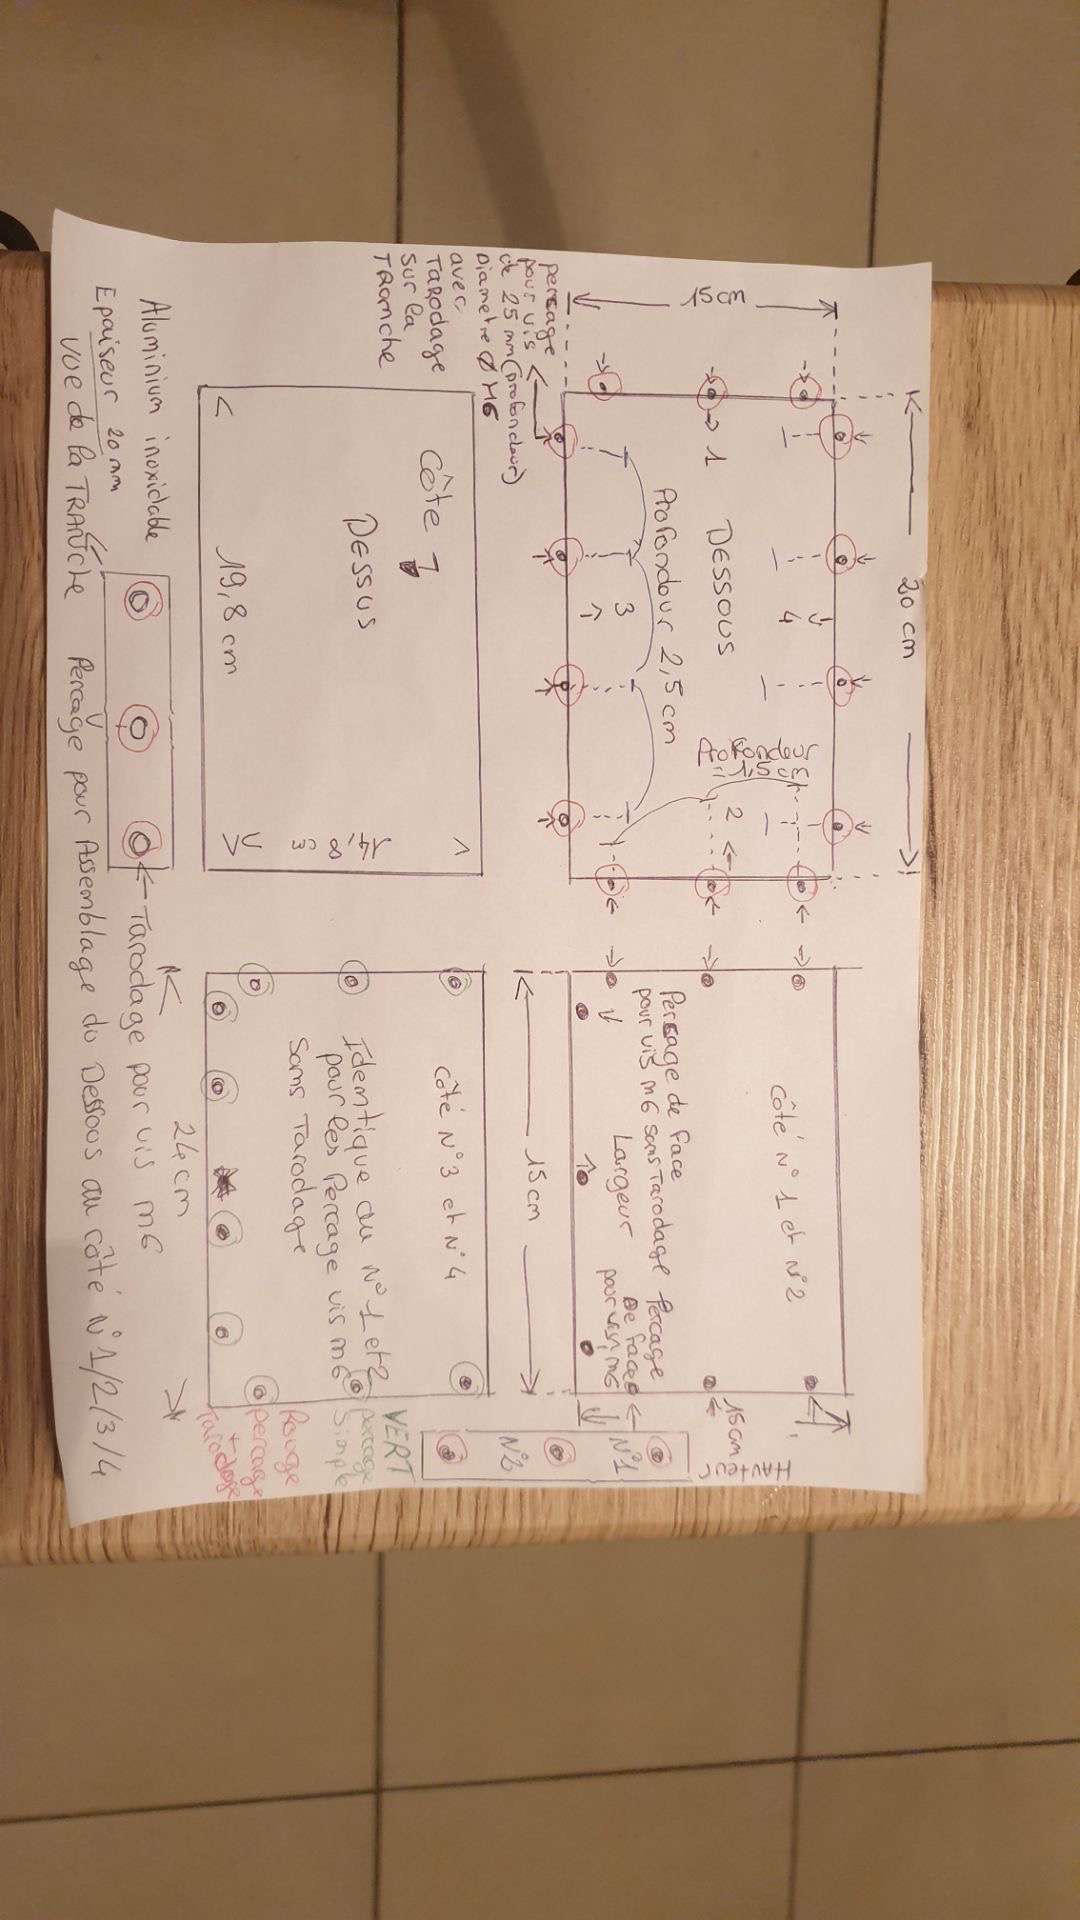 20 cm
15 cm
1
DESSOUS
4
3
Profondeur 2,5 cm
Profondeur
= 1,5 cm
2
percage
pour vis
de 25 mm (profondeur)
Diametre Ø M6
avec
TARODAGE
sur la
TRAnche
côté N° 1 et N°2
Persage de face
pour vis m6 sans Tarodage
Largeur
Percage
De face
pour vis m6
15cm
Hauteur
15 cm
N°1
N°2
Côte 1
DESSUS
19,8 cm
14,8 cm
côté N°3 et N°4
Identique au N° 1 et 2
pour les Percage vis m6
Sans Tarodage
24 cm
VERT
percage
Simple
Rouge
percage
+
Tarodage
Aluminium inoxidable
Epaiseur 20 mm
VUE de la TRANche
Tarodage pour vis m6
Percage pour Assemblage du Dessous au côté N° 1/2/3/4